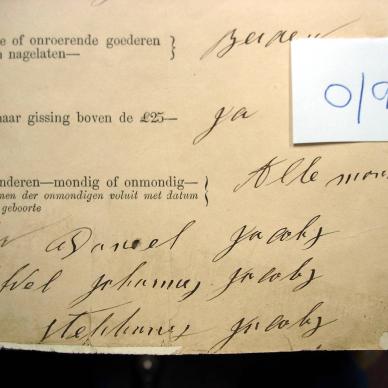 e of onroerende goederen } Beiden
n nagelaten—
0/9
naar gissing boven de £25— ja
nderen—mondig of onmondig— } Alle mon
men der onmondigen voluit met datum
geboorte
Daniel Jacobs
Johannes Jacobs
Stephanus Jacobs